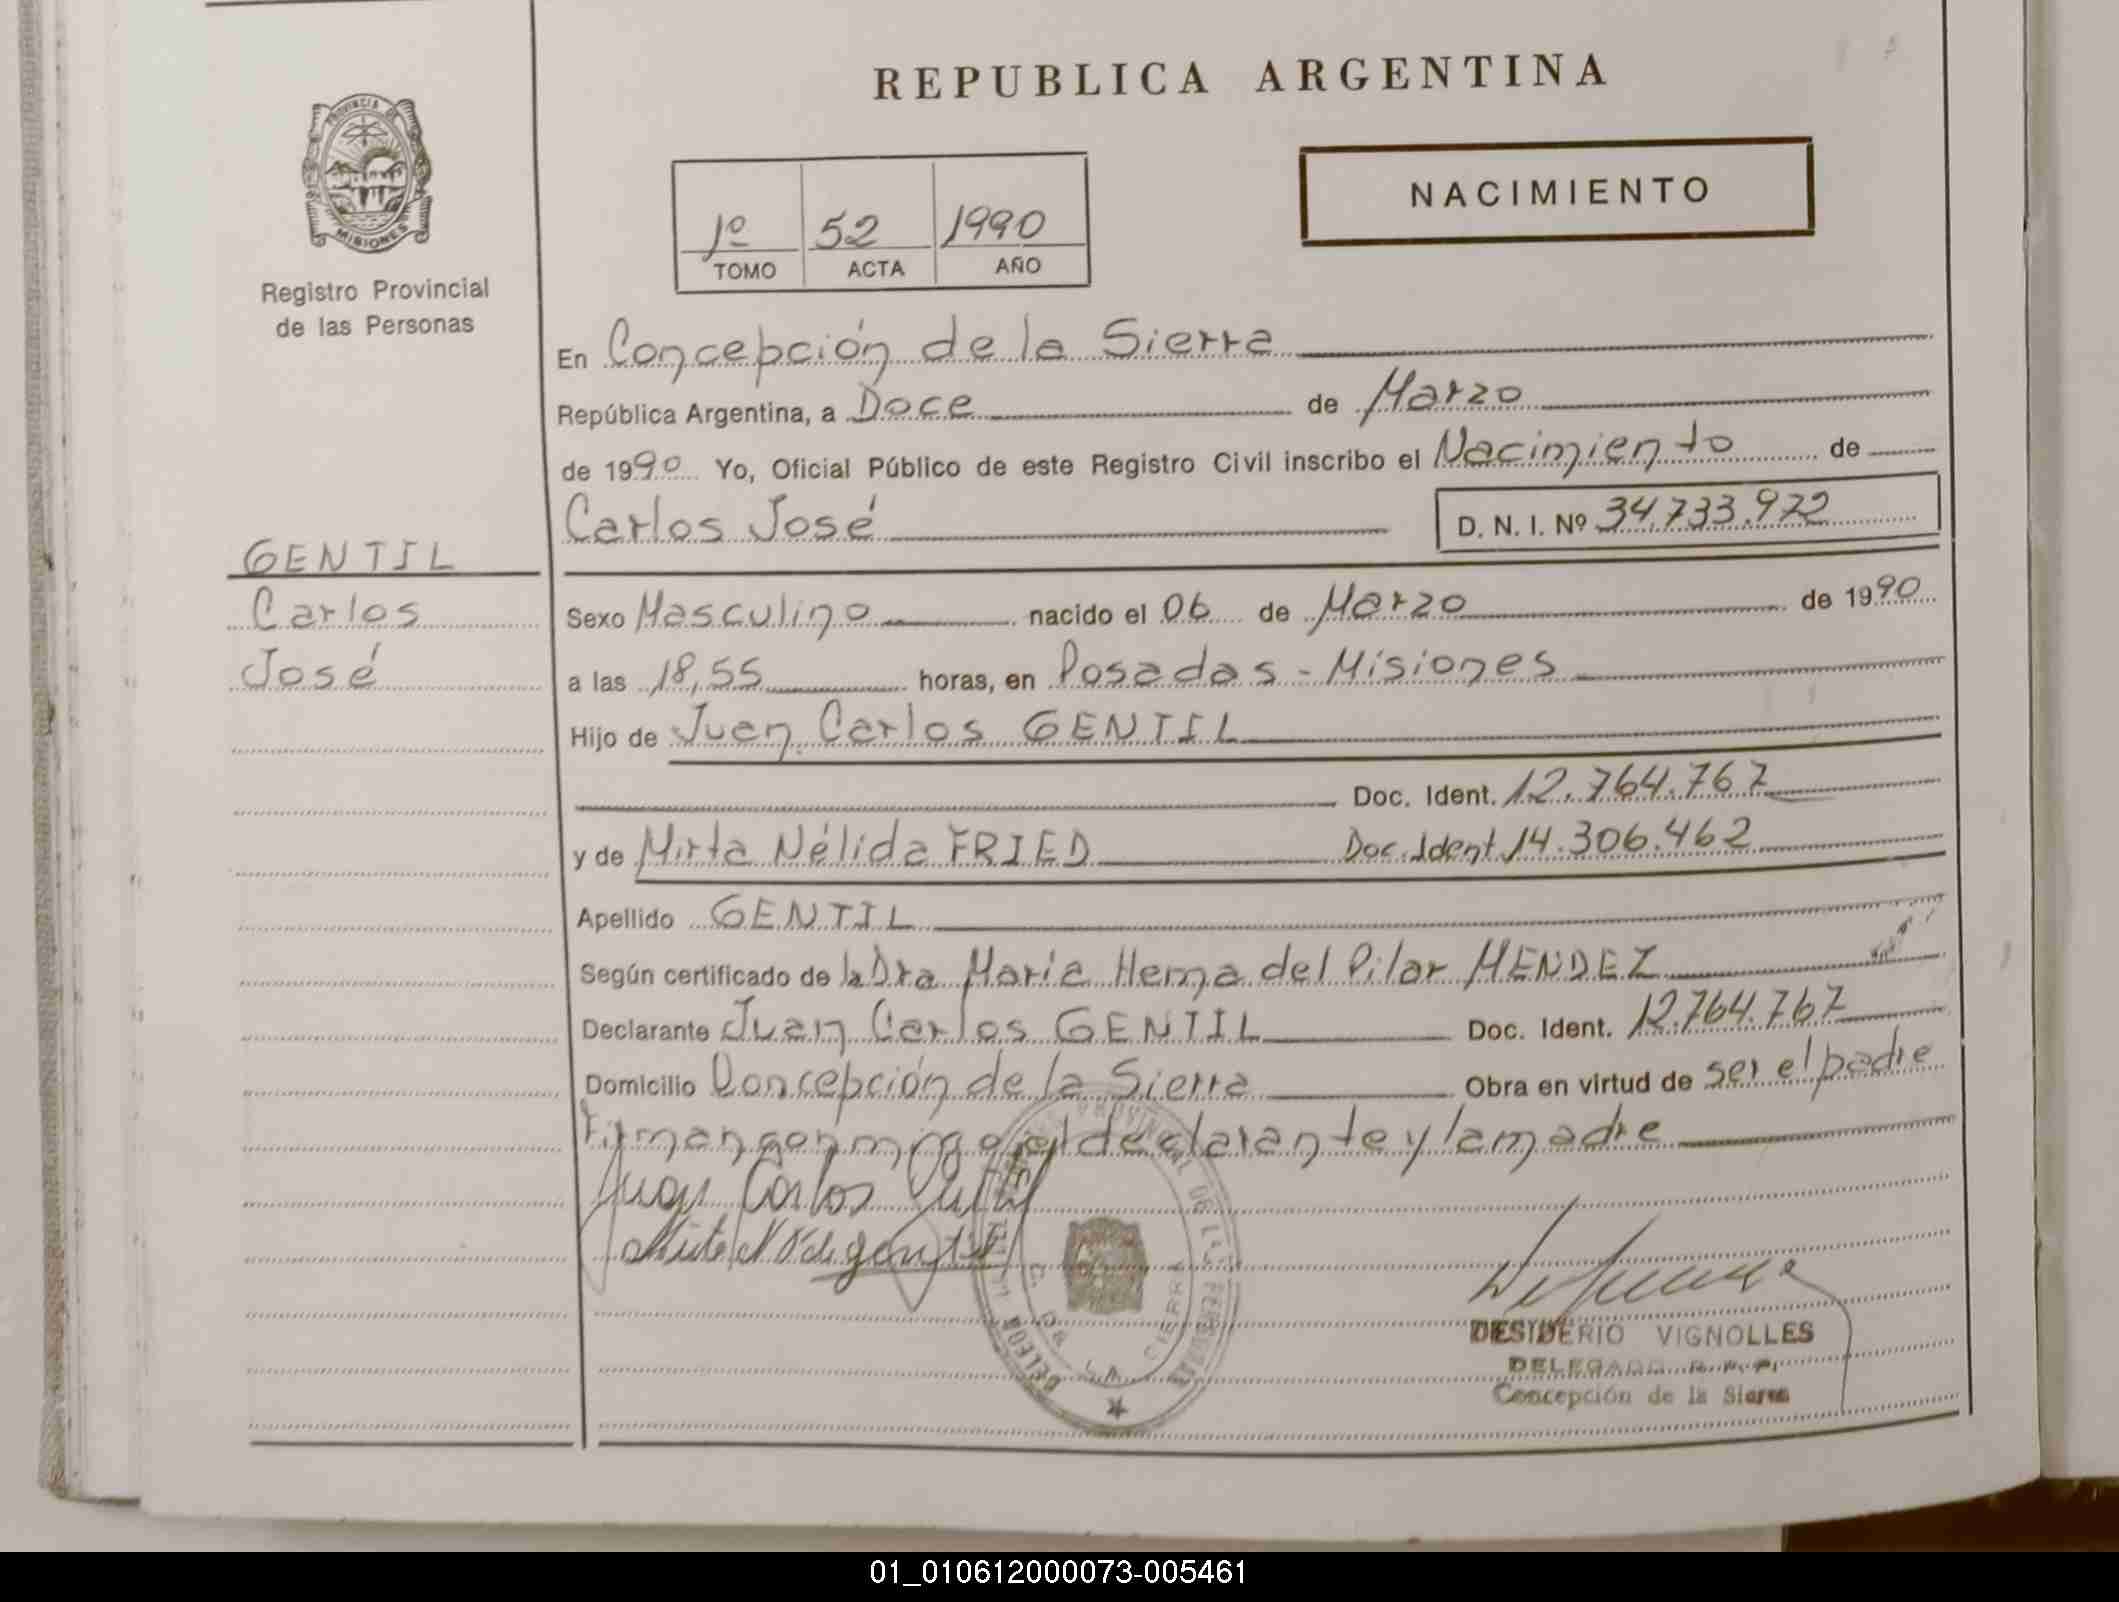 REPUBLICA ARGENTINA
PROVINCIA DE
MISIONES
Registro Provincial
de las Personas
NACIMIENTO
1º 52 1990
TOMO ACTA AÑO
En Concepción de la Sierra
República Argentina, a Doce de Marzo
de 1990 Yo, Oficial Público de este Registro Civil inscribo el Nacimiento de
Carlos José D. N. I. Nº 34.733.972
GENTIL
Carlos
José
Sexo Masculino nacido el 06 de Marzo de 1990
a las 18,55 horas, en Posadas - Misiones
Hijo de Juan Carlos GENTIL
Doc. Ident. 12.764.767
y de Mirta Nélida FRIED Doc. Ident 14.306.462
Apellido GENTIL
Según certificado de la Dra María Hema del Pilar MENDEZ
Declarante Juan Carlos GENTIL Doc. Ident. 12.764.767
Domicilio Concepción de la Sierra Obra en virtud de ser el padre
Firman conmigo el declarante y la madre
Juan Carlos Gentil
de gentil
DESIDERIO VIGNOLLES
DELEGADO R. P. P.
Concepción de la Sierra
01_010612000073-005461